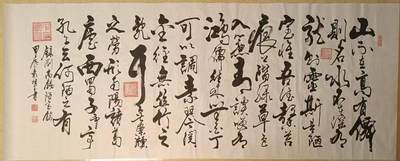 山不在高有仙
則名水不在深有
龍則靈斯是陋
室惟吾德馨苔
痕上階綠草色
入簾青談笑有
鴻儒往來無白丁
可以調素琴閱
金經無絲竹之
亂耳無案牘
之勞形南陽諸葛
廬西蜀子雲亭
孔子云何陋之有
劉禹錫陋室銘